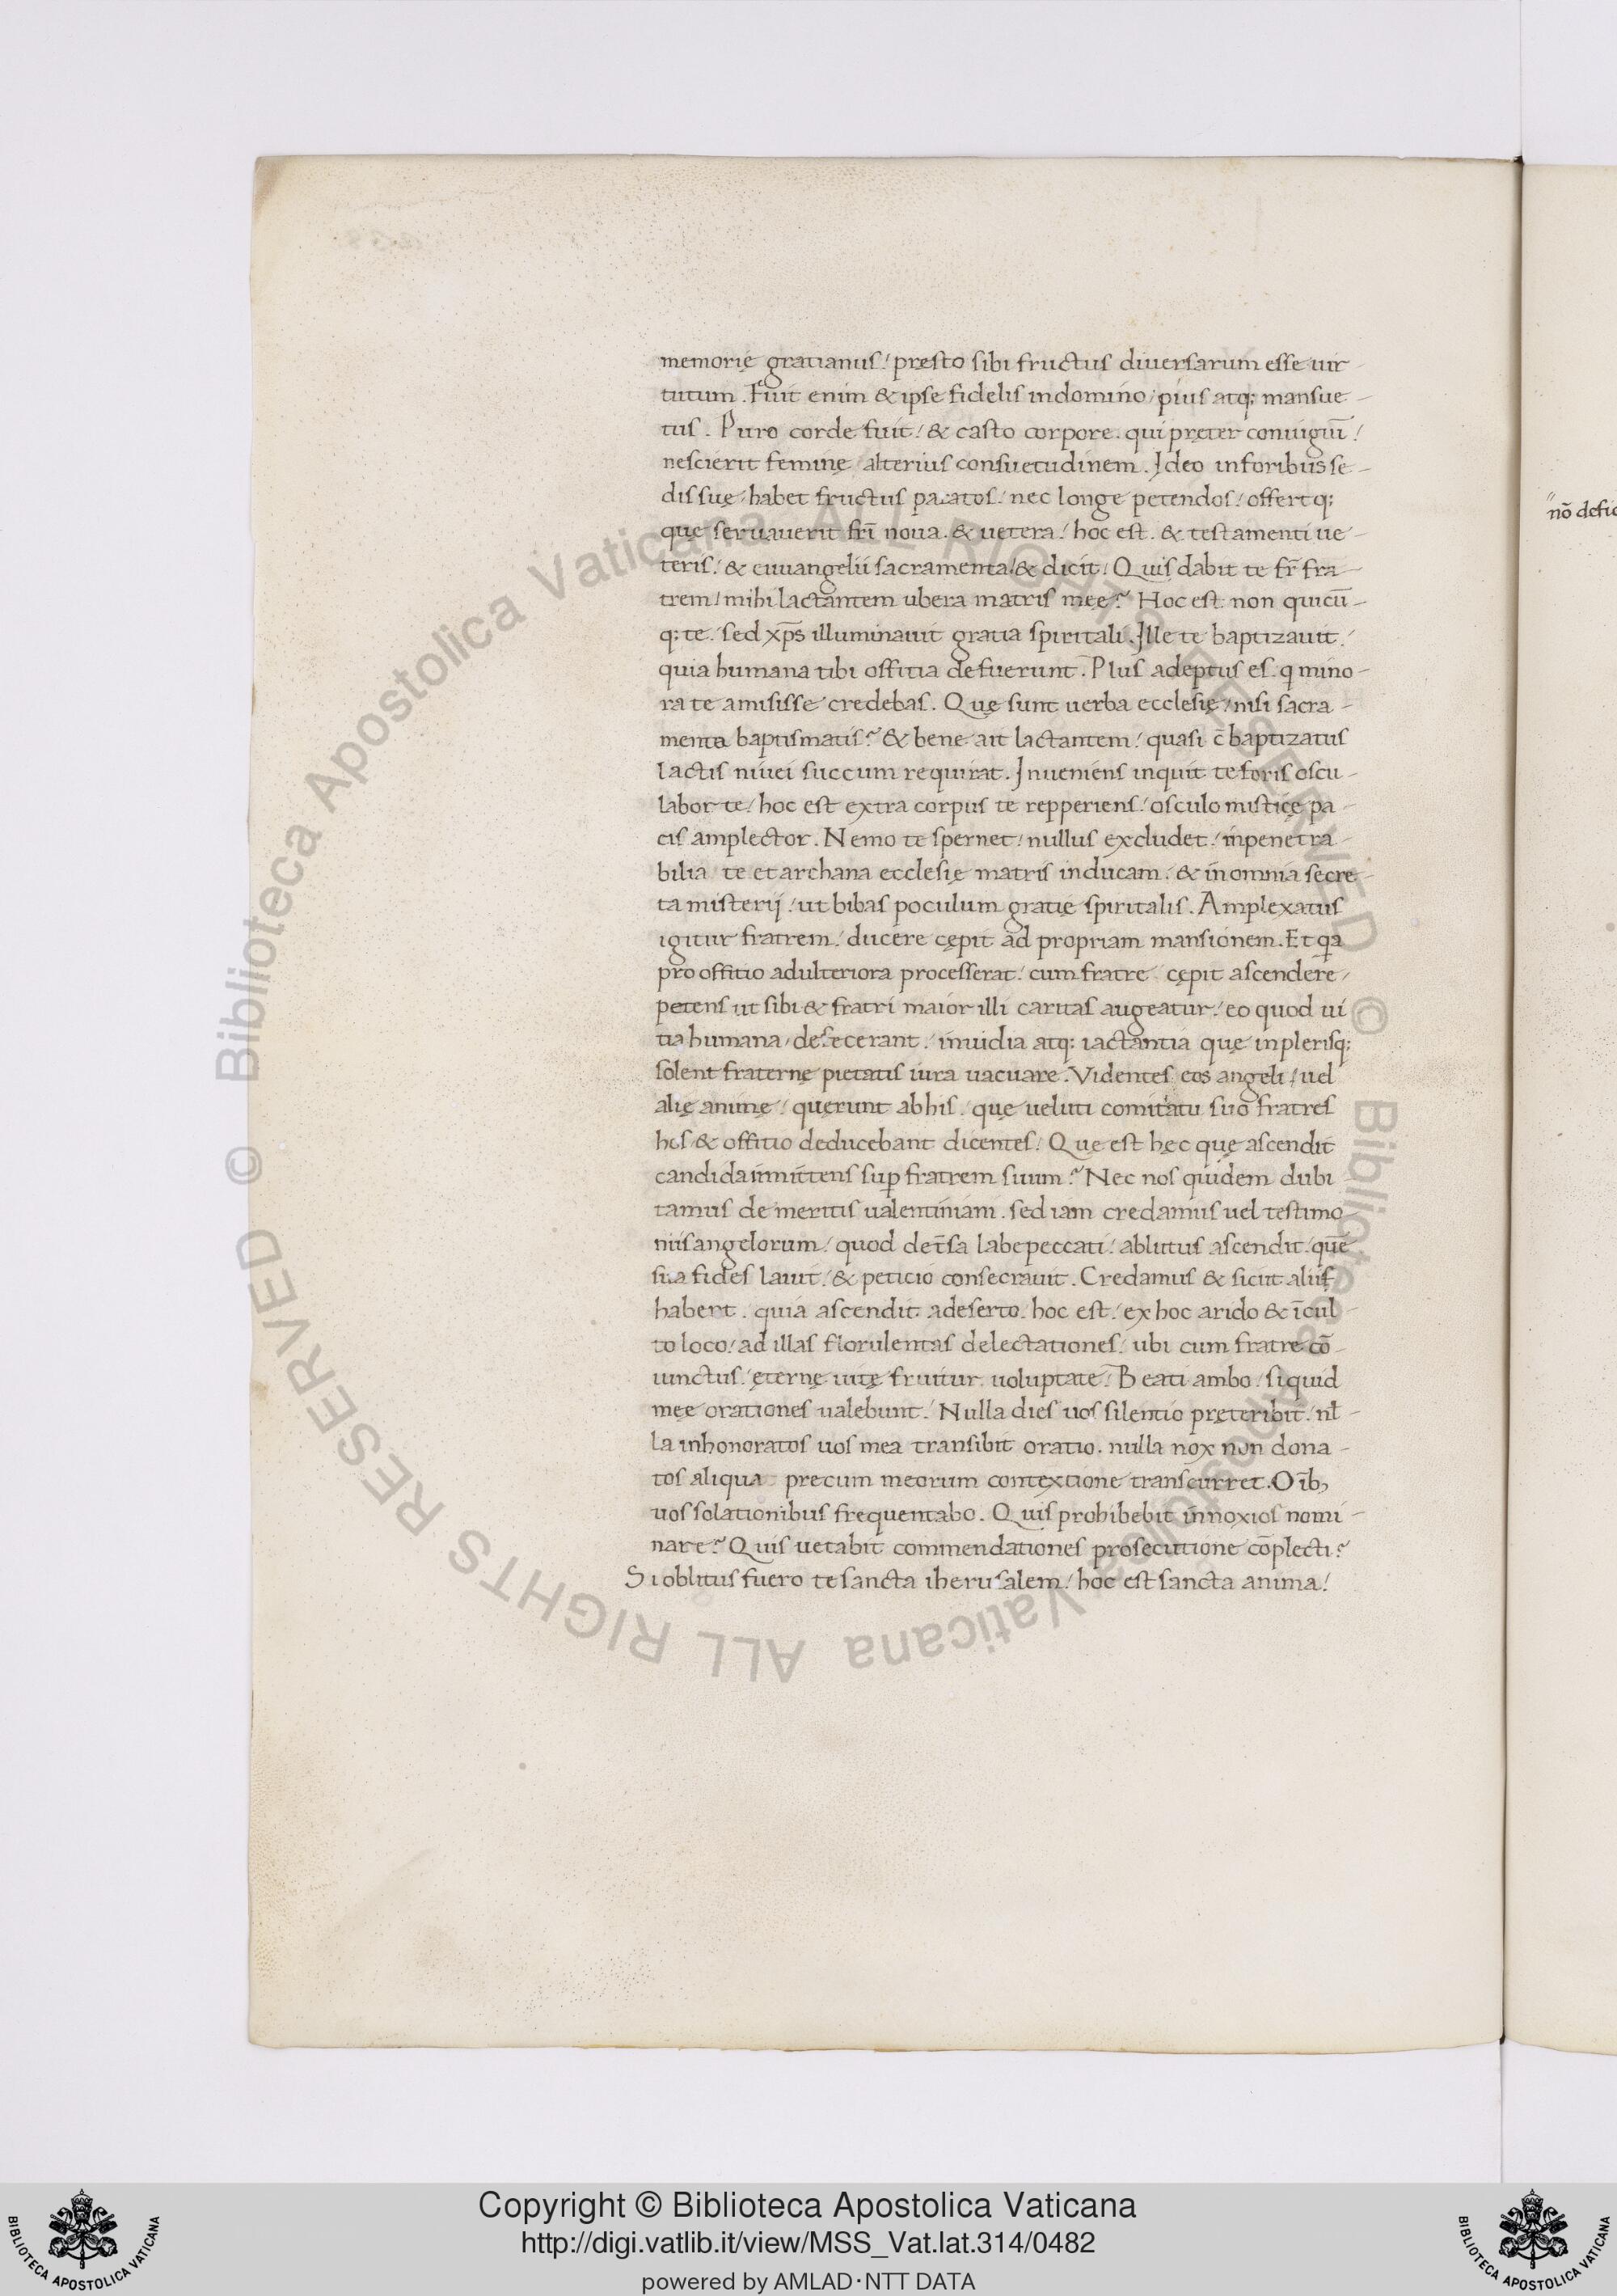 memorię gratianus / pręsto sibi fructus diuersarum esse uir-
tutum. Fuit enim & ipse fidelis in domino / pius atq; mansue-
tus. Puro corde fuit / & casto corpore. qui pręter coniugiū /
nescierit feminę alterius consuetudinem. Ideo in foribus se-
dis suę / habet fructus paratos / nec longe petendos / offert q;
quę seruauerit frī noua. & uetera / hoc est. & testamenti ue-
teris / & euuangelii sacramenta / & dicit / Quis dabit te fr̄ fra-
trem / mihi lactantem ubera matris meę? Hoc est non quicū-
q; te. sed xp̄s illuminauit gratia spiritali. Ille te baptizauit /
quia humana tibi offitia defuerunt. Plus adeptus es. q mino-
ra te amisisse credebas. Quę sunt uerba ecclesię / nisi sacra-
menta baptismatis? & bene ait lactantem / quasi c̄ baptizatus
lactis niuei succum requirat. Inueniens inquit te foris oscu-
labor te / hoc est extra corpus te repperiens / osculo misticę pa-
cis amplector. Nemo te spernet / nullus excludet / inpenetra-
bilia te et archana ecclesię matris inducam. & in omnia secre-
ta misterij / ut bibas poculum gratię spiritalis. Amplexatus
igitur fratrem / ducere cępit ad propriam mansionem. Et qa
pro offitio adulteriora processerat / cum fratre cępit ascendere /
petens ut sibi & fratri maior illi caritas augeatur / eo quod ui
tia humana / defecerant. inuidia atq; iactantia quę in plerisq;
solent fraternę pietatis iura uacuare. Videntes eos angeli / uel
alię animę / quęrunt ab his. quę ueluti comitatu suo fratres
hos & offitio deducebant dicentes / Quę est hęc quę ascendit
candida innitens sup fratrem suum? Nec nos quidem dubi
tamus de meritis ualentiniani. sed iam credamus uel testimo-
niis angelorum / quod det̄sa labe peccati / ablutus ascendit. quē
sua fides lauit / & peticio consecrauit. Credamus & sicut aliis
habent. quia ascendit a deserto / hoc est / ex hoc arido & īcul-
to loco / ad illas florulentas delectationes / ubi cum fratre cō-
iunctus / ęternę uitę fruitur uoluptate / Beati ambo / si quid
meę orationes ualebunt / Nulla dies uos silentio pręteribit. nł-
la inhonoratos uos mea transibit oratio. nulla nox non dona-
tos aliqua precum meorum contextione transcurret. Oībꝫ
uos solationibus frequentabo. Quis prohibebit innoxios nomi-
nare? Quis uetabit commendationes prosecutione cōplecti?
Si oblitus fuero te sancta iherusalem / hoc est sancta anima /
nō defic
Copyright © Biblioteca Apostolica Vaticana
http://digi.vatlib.it/view/MSS_Vat.lat.314/0482
powered by AMLAD·NTT DATA
BIBLIOTECA APOSTOLICA VATICANA
BIBLIOTECA APOSTOLICA VATICANA
© Biblioteca Apostolica Vaticana ALL RIGHTS RESERVED © Biblioteca Apostolica Vaticana ALL RIGHTS RESERVED